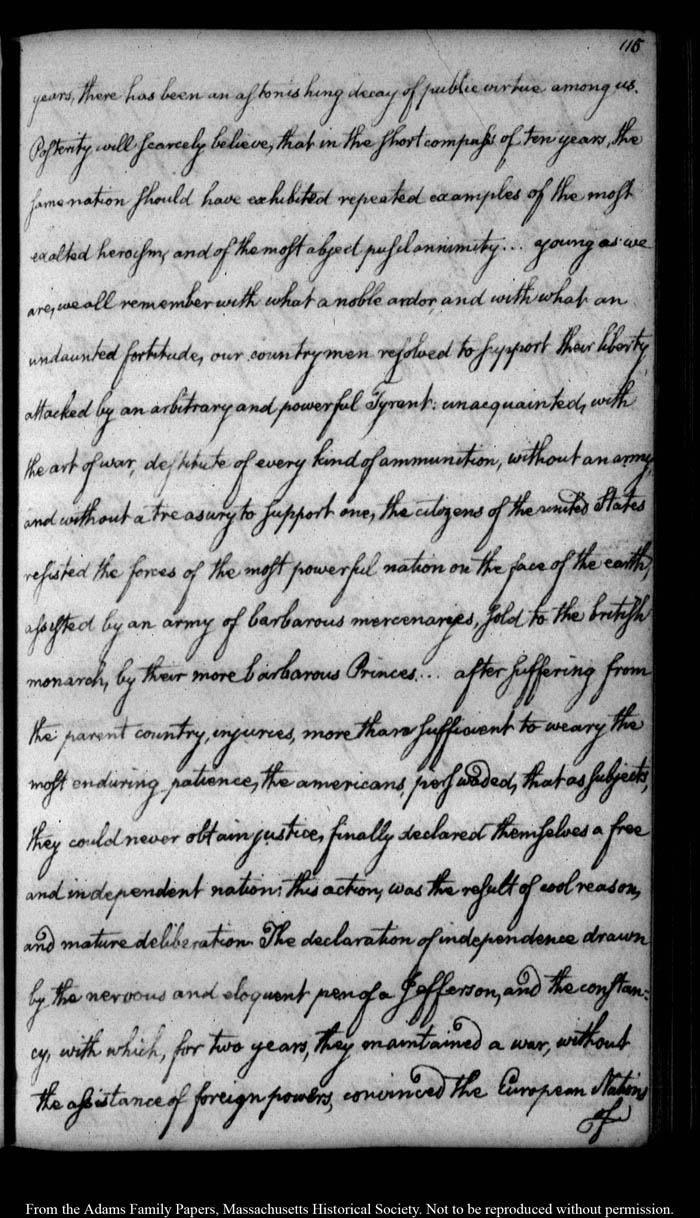 115
years, there has been an astonishing decay of public virtue among us.
Posterity will scarcely believe, that in the short compass of ten years, the
same nation should have exhibited repeated examples of the most
exalted heroism, and of the most abject pusilannimity... young as we
are, we all remember with what a noble ardor, and with what an
undaunted fortitude, our countrymen resolved to support their liberty,
attacked by an arbitrary and powerful Tyrent: unacquainted, with
the art of war, destitute of every kind of ammunition, without an army,
and without a treasury to support one, the citizens of the united States
resisted the forces of the most powerful nation on the face of the earth,
assisted by an army of barbarous mercenaries, sold to the british
monarch, by their more barbarous Princes... after suffering from
the parent country, injuries, more than sufficient to weary the
most enduring patience, the americans, perswaded, that as subjects,
they could never obtain justice, finally declared themselves a free
and independent nation: this action, was the result of cool reason,
and mature deliberation. The declaration of independence drawn
by the nervous and eloquent pen of a Jefferson, and the constan:
cy, with which, for two years, they maintained a war, without
the assistance of foreign powers, convinced the European Nations
of
From the Adams Family Papers, Massachusetts Historical Society. Not to be reproduced without permission.